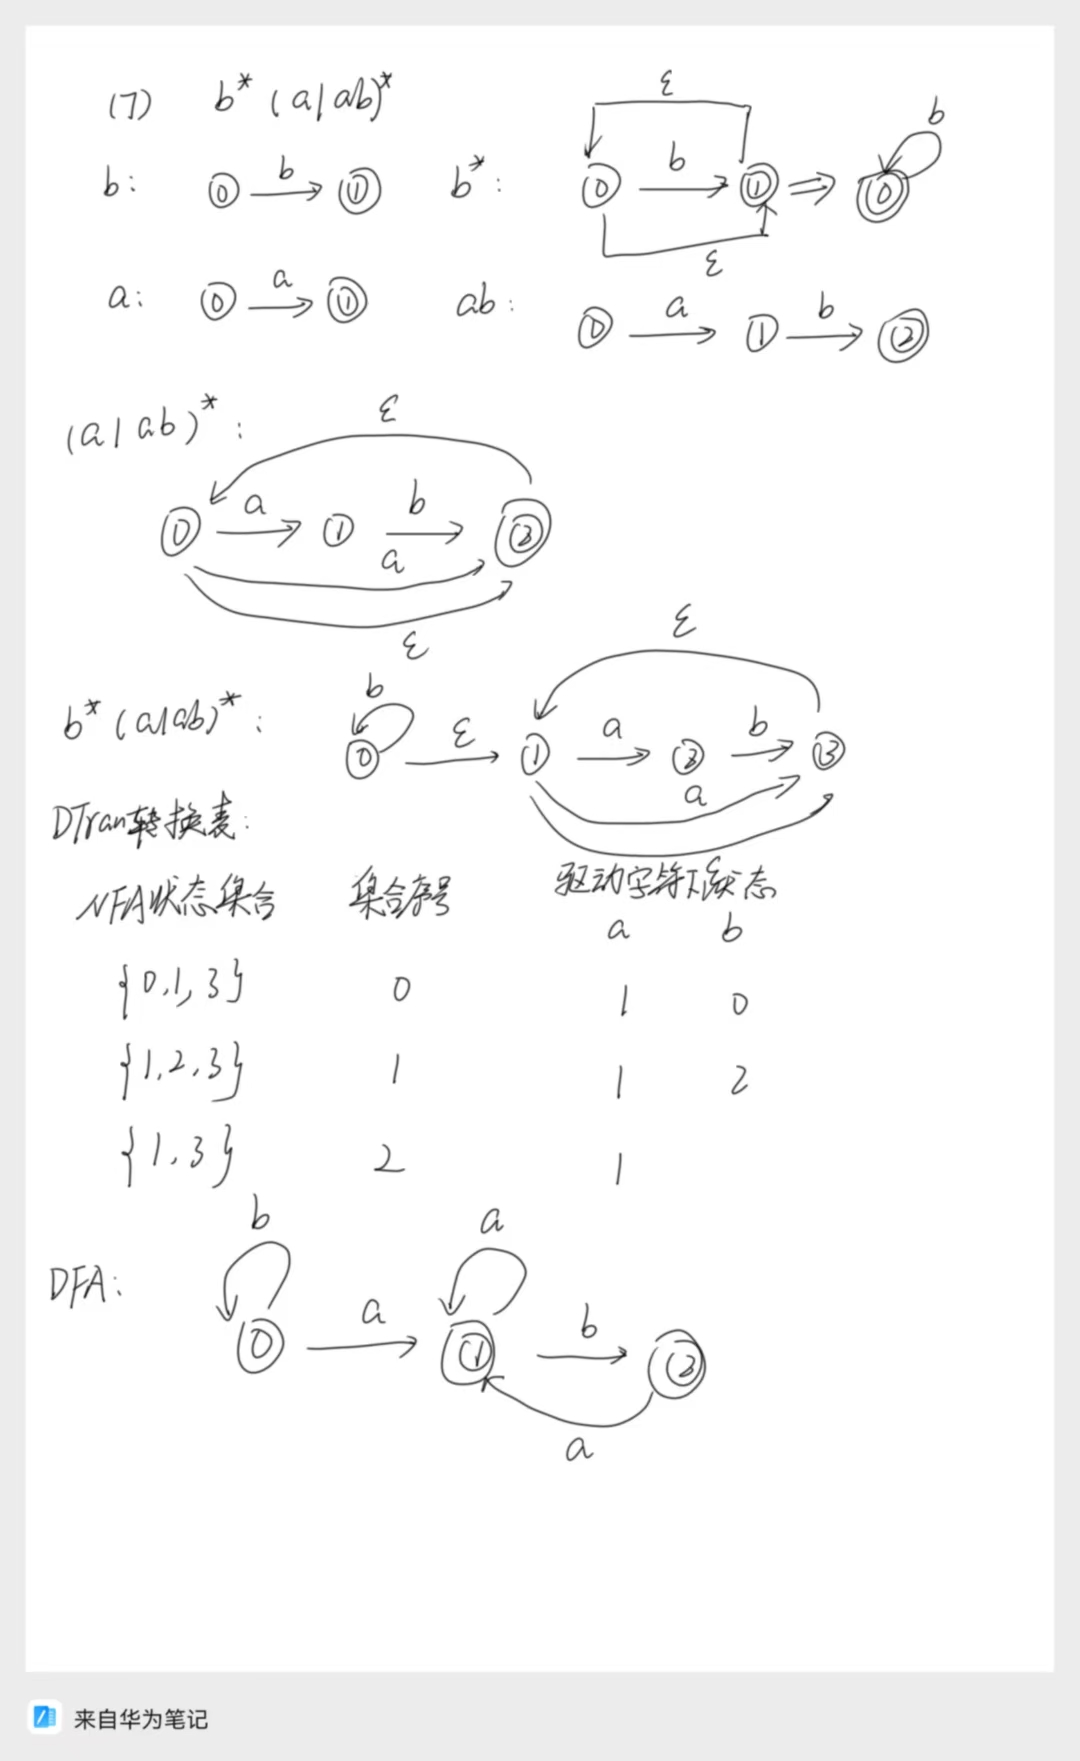 (7) b* (a|ab)*
b: 0 b 1 b*: ε 0 b 1 ε ⇒ 0 b
a: 0 a 1 ab: 0 a 1 b 2
(a|ab)*: ε
0 a 1 b 2
a
ε
b*(a|ab)*: b 0 ε 1 a 2 b 3 ε
a
ε
DTran转换表:
NFA状态集合 集合序号 驱动字符下状态
a b
{0,1,3} 0 1 0
{1,2,3} 1 1 2
{1,3} 2 1
DFA: b a
0 a 1 b 2
a
来自华为笔记